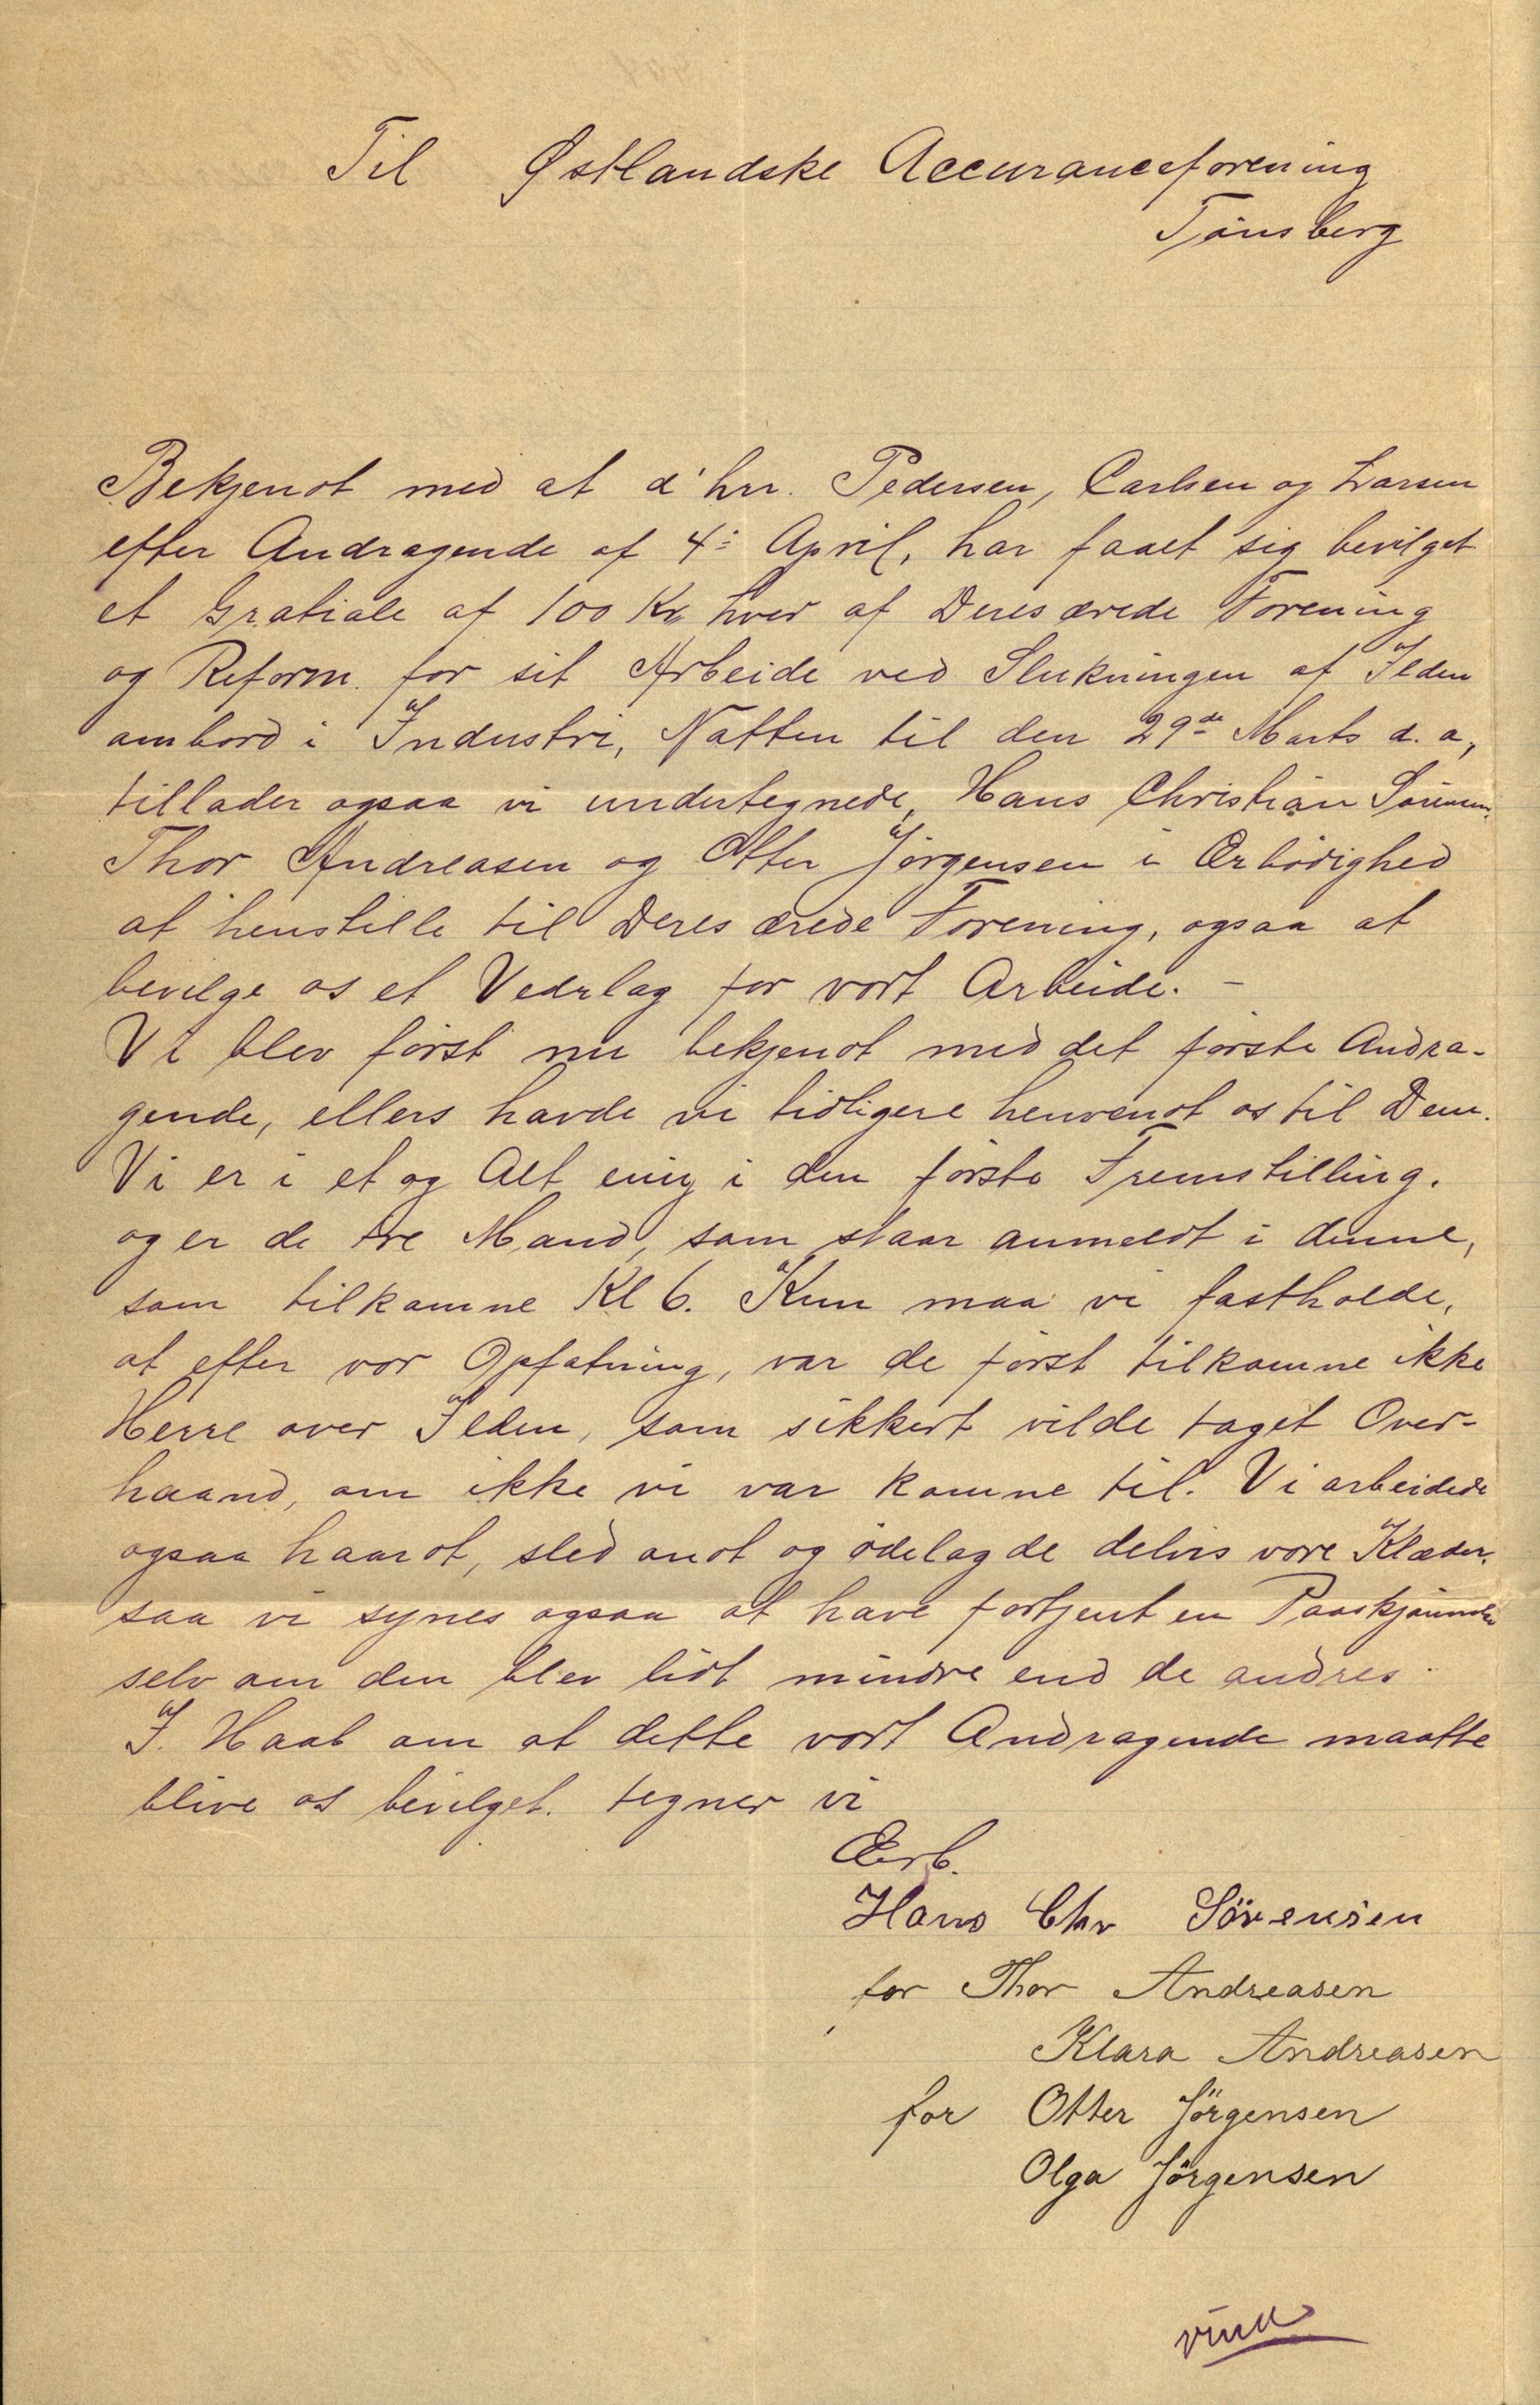 Til Østlandske Accuranceforening
Tönsberg
Bekjendt med at d'hrr. Pedersen, Carlsen og Larsen
efter Andragende af 4: April, har faaet sig bevilget
et Gratiale af 100 Kr, hver af Deres ærede Forening
og Reform. for sit Arbeide ved Slukningen af Ilden
ombord i Industri, Natten til den 29de Marts d. a,
tillader ogsaa vi undertegnede, Hans Christian Sörensen,
Thor Andreasen og Otter Jörgensen i Ærbödighed
at henstille til Deres ærede Forening, ogsaa at
bevilge os et Vedrlag for vort Arbeide. –
Vi blev först nu bekjendt med det förste Andra-
gende, ellers havde vi tidligere henvendt os til Dem.
Vi er i et og Alt enig i den förste Fremstilling.
og er de tre Mand, som staar anmeldt i denne,
som tilkomne Kl 6. Kun maa vi fastholde,
at efter vor Opfatning, var de först tilkomne ikke
Herre over Ilden, som sikkert vilde taget Over-
haand, om ikke vi var komne til. Vi arbeidede
ogsaa haardt, sled ondt og ödelagde delvis vore Klæder,
saa vi synes ogsaa at have fortjent en Paaskjönnelse
selv om den blev lidt mindre end de andres.
I. Haab om at dette vort Andragende maatte
blive os bevilget. tegner vi
Ærb.
Hans Chr Sörensen
for Thor Andreasen
Klara Andreasen
for Otter Jörgensen
Olga Jörgensen